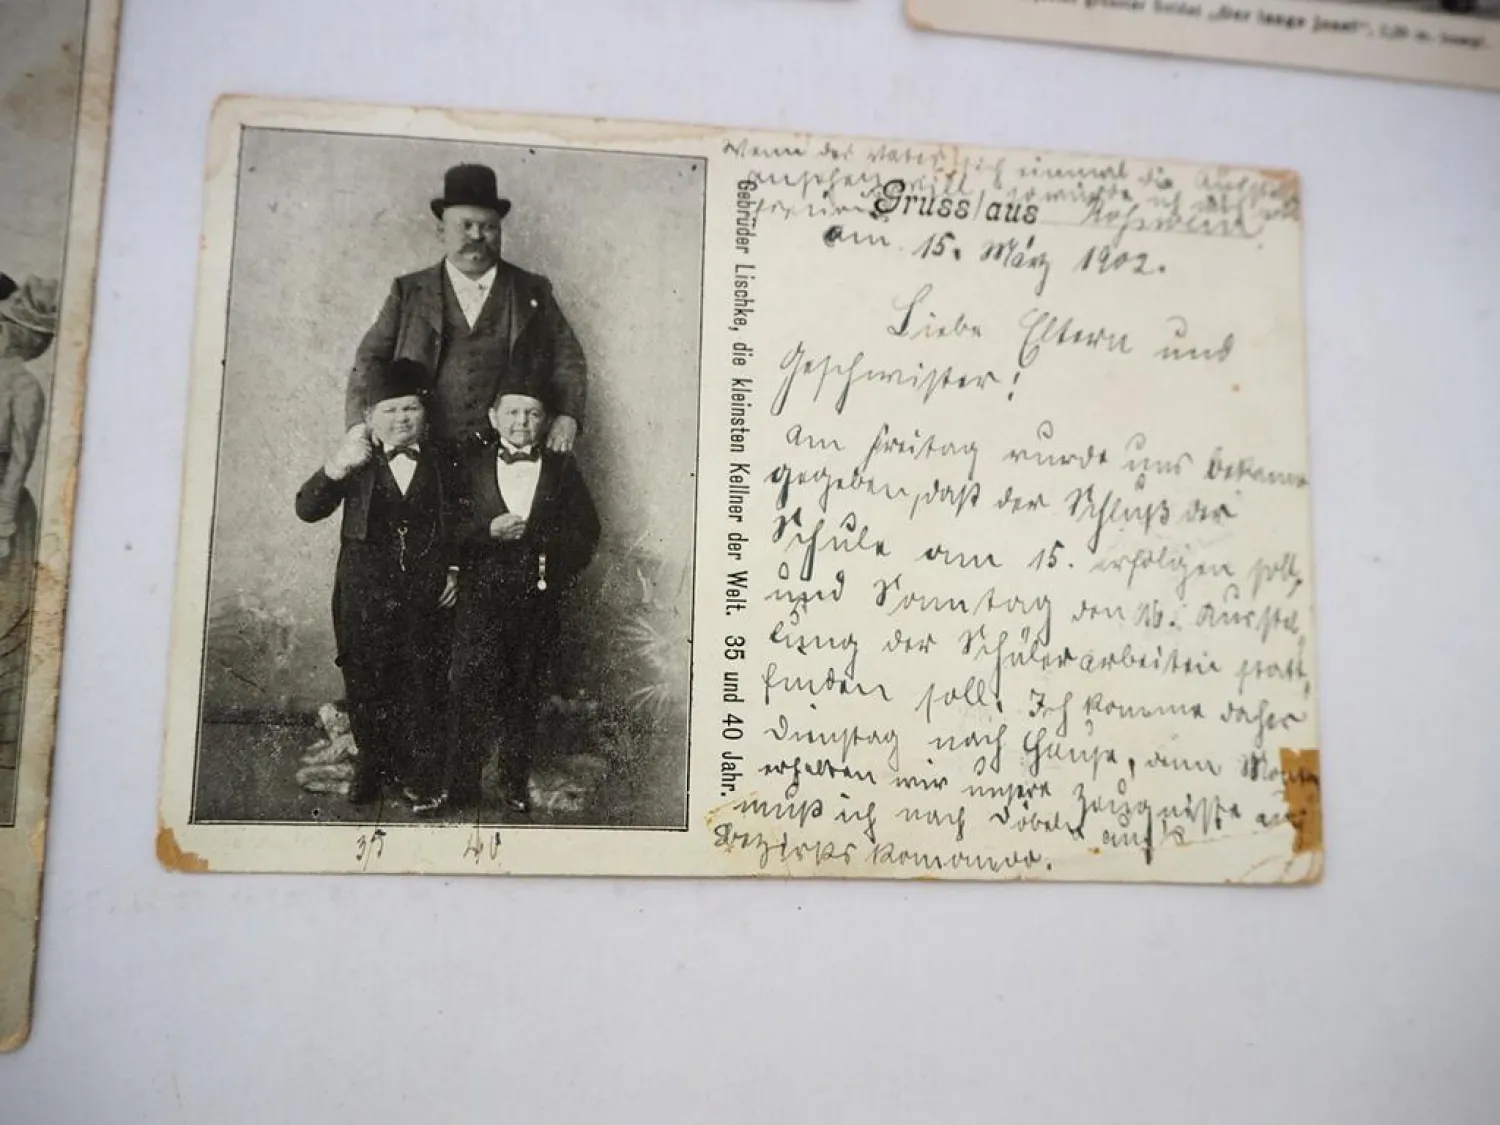 größter Soldat „Der lange Josef",
Gebrüder Lischke, die kleinsten Kellner der Welt. 35 und 40 Jahr.
Wenn der Vater sich einmal die
ansehen will, so würde
Gruss aus Roßwein
am 15. März 1902.
Liebe Eltern und
Geschwister!
Am Freitag wurde uns bekannt
gegeben, daß der Schluß der
Schule am 15. erfolgen soll,
und Sonntag den 16. Ausstel
lung der Schülerarbeiten statt
finden soll. Ich komme daher
Dienstag nach Hause, am Montag
erhalten wir unsere Zeugnisse
muß ich nach Döbeln aufs
Bezirkskomando.
35 40